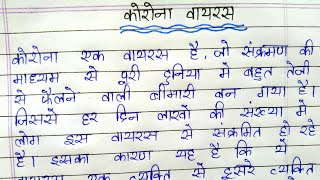 कोरोना वायरस
कोरोना एक वायरस है, जो संक्रमण की
माध्यम से पूरी दुनिया मे बहुत तेजी
से फैलने वाली बीमारी बन गया है।
जिससे हर दिन लाखों की संख्या में
लोग इस वायरस से संक्रमित हो रहे
है। इसका कारण यह है कि ये
एक व्यक्ति से दूसरे व्यक्ति